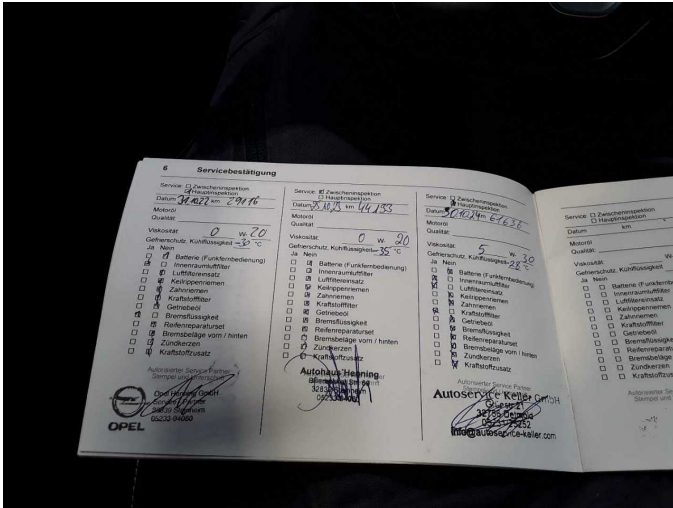 6 Servicebestätigung
Service: Zwischeninspektion
Hauptinspektion
Datum km 29116
Motoröl
Qualität:
Viskosität: 0 W- 20
Gefrierschutz, Kühlflüssigkeit -30 °C
Ja Nein
Batterie (Funkfernbedienung)
Innenraumluftfilter
Luftfiltereinsatz
Keilrippenriemen
Zahnriemen
Kraftstofffilter
Getriebeöl
Bremsflüssigkeit
Reifenreparaturset
Bremsbeläge vorn / hinten
Zündkerzen
Kraftstoffzusatz
Autorisierter Service Partner
Stempel und Unterschrift
Opel Henning GmbH
Service Partner
32839 Steinheim
05233-94060
OPEL
Service: Zwischeninspektion
Hauptinspektion
Datum 25.10.23 km 44153
Motoröl
Qualität:
Viskosität: 0 W- 20
Gefrierschutz, Kühlflüssigkeit -35 °C
Ja Nein
Batterie (Funkfernbedienung)
Innenraumluftfilter
Luftfiltereinsatz
Keilrippenriemen
Zahnriemen
Kraftstofffilter
Getriebeöl
Bremsflüssigkeit
Reifenreparaturset
Bremsbeläge vorn / hinten
Zündkerzen
Kraftstoffzusatz
Autohaus Henning
Service: Zwischeninspektion
Hauptinspektion
Datum 30.10.24 km 61636
Motoröl
Qualität:
Viskosität: 5 W- 30
Gefrierschutz, Kühlflüssigkeit -28 °C
Ja Nein
Batterie (Funkfernbedienung)
Innenraumluftfilter
Luftfiltereinsatz
Keilrippenriemen
Zahnriemen
Kraftstofffilter
Getriebeöl
Bremsflüssigkeit
Reifenreparaturset
Bremsbeläge vorn / hinten
Zündkerzen
Kraftstoffzusatz
Autorisierter Service Partner
Stempel und
Autoservice Keller GmbH
32758 Detmold
info@autoservice-keller.com
Service: Zwischeninspektion
Hauptinspektion
Datum km
Motoröl
Qualität:
Viskosität: W-
Gefrierschutz, Kühlflüssigkeit
Ja Nein
Batterie (Funkfernb
Innenraumluftfilter
Luftfiltereinsatz
Keilrippenriemen
Zahnriemen
Kraftstofffilter
Getriebeöl
Bremsflüssigke
Reifenreparat
Bremsbeläge
Zündkerzen
Kraftstoffzus
Autorisierter Ser
Stempel und